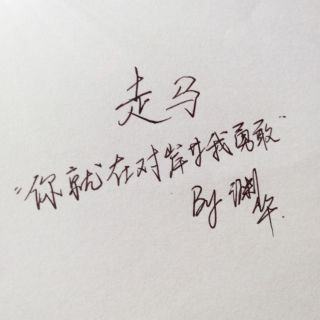 走马
"你就在对岸等我勇敢"
By